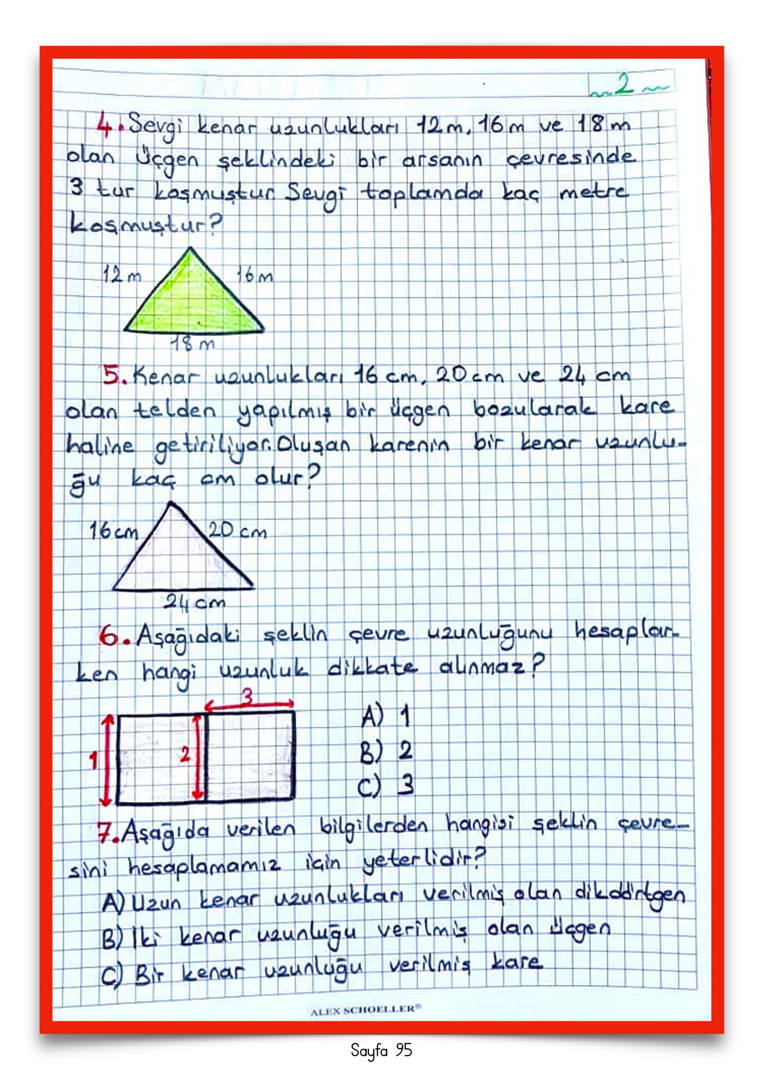 2
4. Sevgi kenar uzunlukları 12m, 16m ve 18m
olan üçgen şeklindeki bir arsanın çevresinde
3 tur koşmuştur. Sevgi toplamda kaç metre
koşmuştur?
12 m
16m
18 m
5. Kenar uzunlukları 16 cm, 20 cm ve 24 cm
olan telden yapılmış bir üçgen bozularak kare
haline getiriliyor. Oluşan karenin bir kenar uzunlu-
ğu kaç cm olur?
16cm
20 cm
24 cm
6. Aşağıdaki şeklin çevre uzunluğunu hesaplar-
ken hangi uzunluk dikkate alınmaz?
3
1
2
A) 1
B) 2
C) 3
7. Aşağıda verilen bilgilerden hangisi şeklin çevre-
sini hesaplamamız için yeterlidir?
A) Uzun kenar uzunlukları verilmiş olan dikdörtgen
B) İki kenar uzunluğu verilmiş olan üçgen
C) Bir kenar uzunluğu verilmiş kare
ALEX SCHOELLER®
Sayfa 95